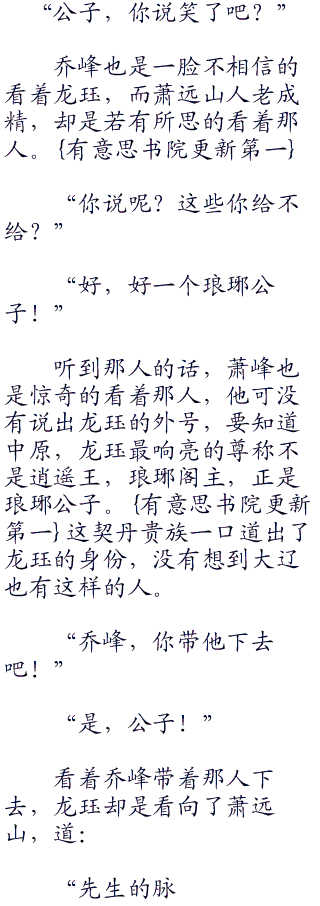 “公子，你说笑了吧？”
乔峰也是一脸不相信的
看着龙珏，而萧远山人老成
精，却是若有所思的看着那
人。{有意思书院更新第一}
“你说呢？这些你给不
给？”
“好，好一个琅琊公
子！”
听到那人的话，萧峰也
是惊奇的看着那人，他可没
有说出龙珏的外号，要知道
中原，龙珏最响亮的尊称不
是逍遥王，琅琊阁主，正是
琅琊公子。{有意思书院更新
第一}这契丹贵族一口道出了
龙珏的身份，没有想到大辽
也有这样的人。
“乔峰，你带他下去
吧！”
“是，公子！”
看着乔峰带着那人下
去，龙珏却是看向了萧远
山，道：
“先生的脉